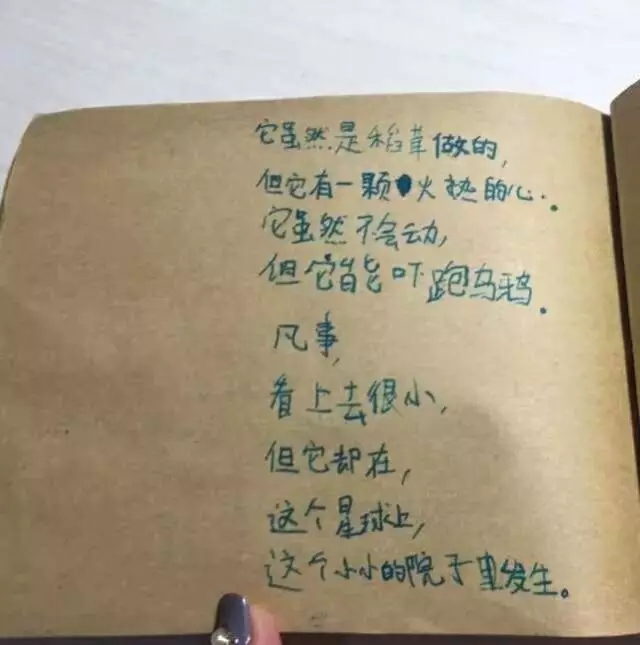 它虽然是稻草做的，
但它有一颗火热的心.。
它虽然不会动，
但它能吓跑乌鸦。
凡事，
看上去很小，
但它却在，
这个星球上，
这个小小的院子里发生。